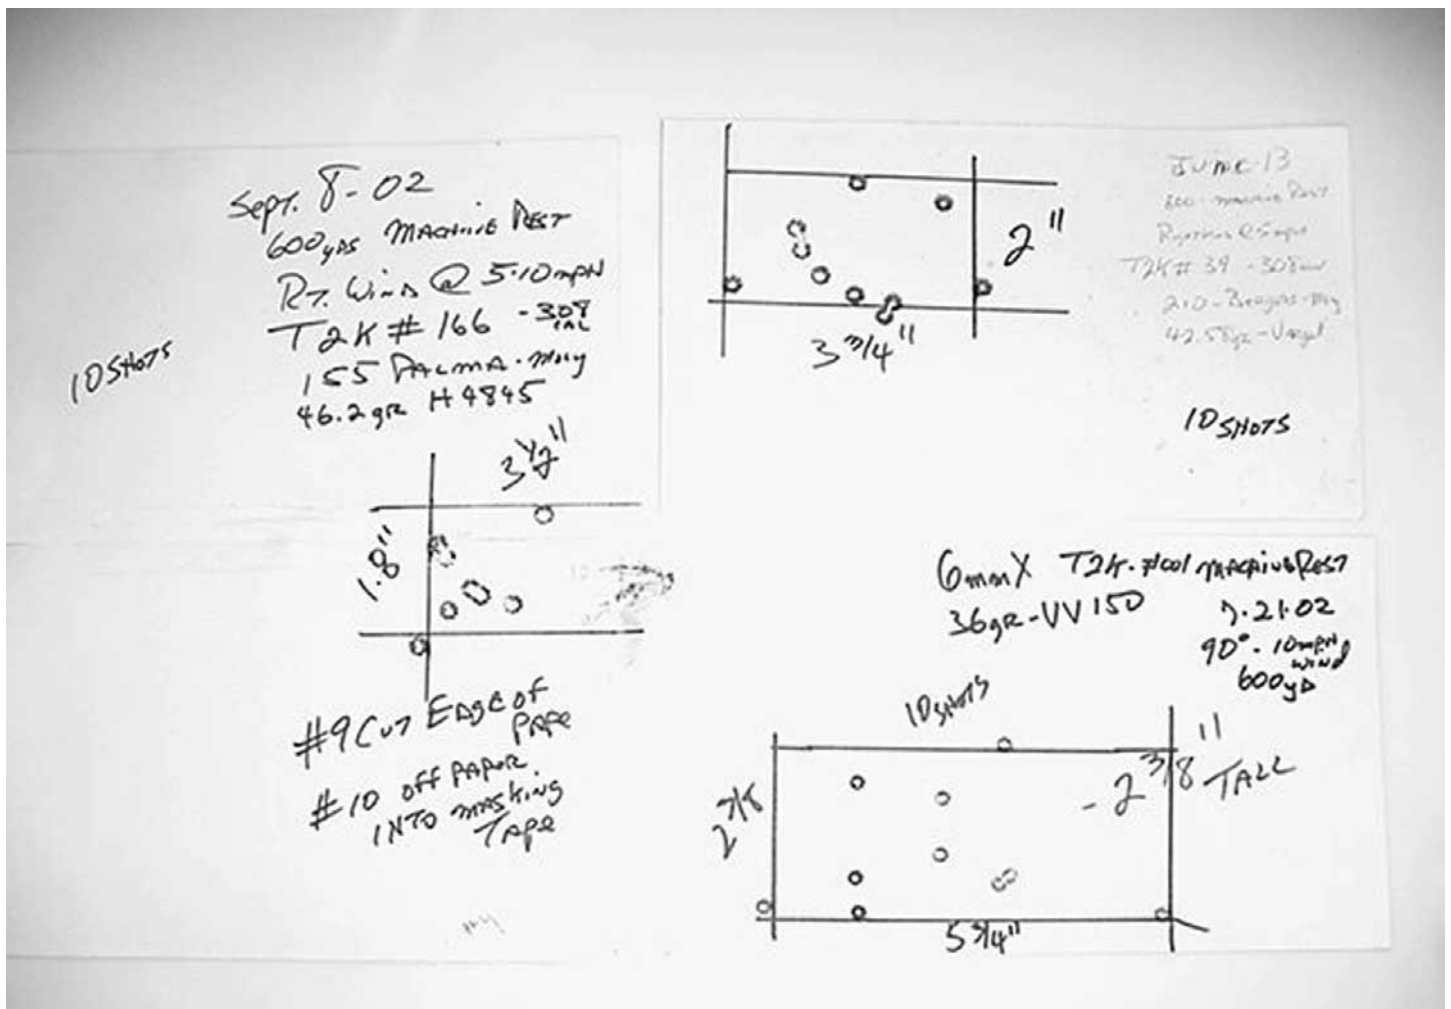 Sept. 8-02
600yds Machine Rest
Rt. Wind @ 5-10mph
T2K # 166 - 308
CAL
155 Palma-Moly
46.2gr H4845
10 SHOTS
3 1/2"
1.8"
#9 Cut Edge of
Pape
#10 off Paper
INTO masking
Tape
June-13
600-machine Rest
T2K # 39 - 308
210-Bergers-Moly
10 SHOTS
2"
3 3/4"
6mmX T2K-#001 Machine Rest
36gr-VV150
7.21.02
90° - 10mph
wind
600yd
10 shots
2 3/8
- 2 3/8" TALL
5 3/4"